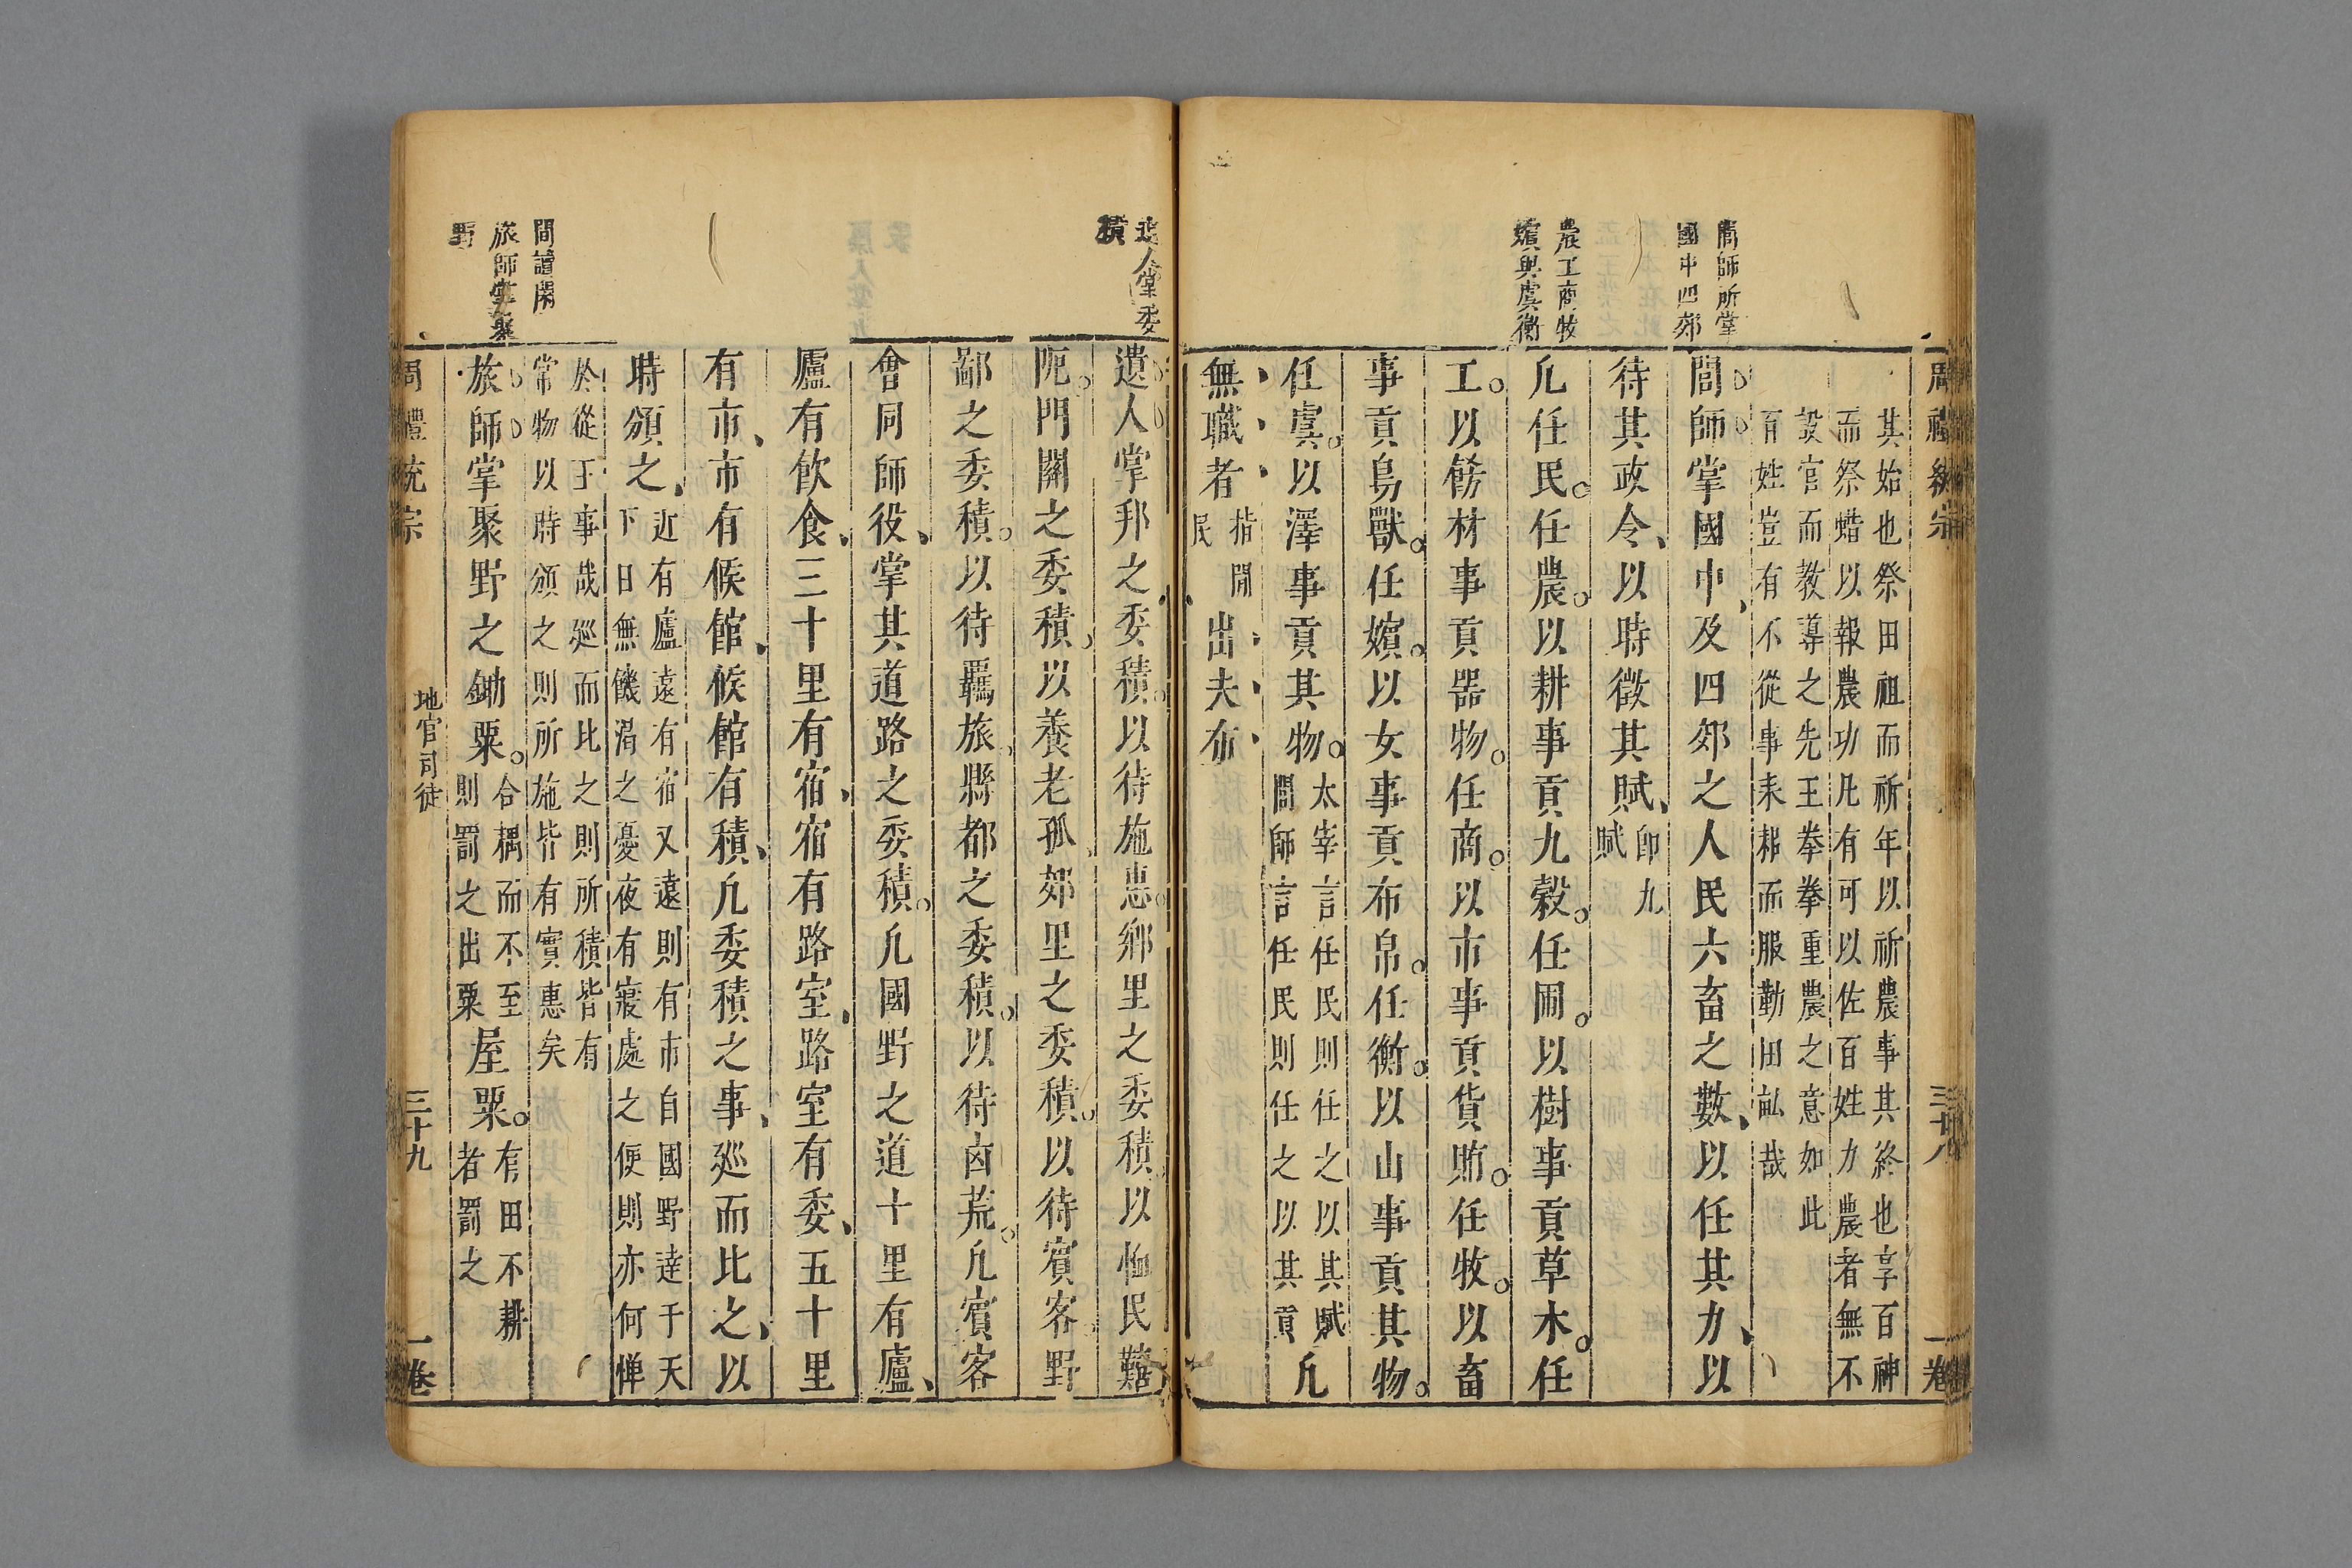 周禮統宗 三十八 一卷
閭師所掌
國中四郊
農工商牧
嬪與虞衡
其始也祭田祖而祈年以祈農事其終也享百神
而祭蜡以報農功凡有可以佐百姓力農者無不
設官而教導之先王拳拳重農之意如此
百姓豈有不從事耒耜而服勤田畝哉
閭師掌國中及四郊之人民六畜之數以任其力以
待其政令以時徵其賦
即九
賦
凡任民任農以耕事貢九穀任圃以樹事貢草木任
工以飭材事貢器物任商以市事貢貨賄任牧以畜
事貢鳥獸任嬪以女事貢布帛任衡以山事貢其物
任虞以澤事貢其物
太宰言任民則任之以其賦
閭師言任民則任之以其貢
凡
無職者
指閒
民
出夫布
遺人掌委
積
遺人掌邦之委積以待施惠鄉里之委積以恤民囏
阨門關之委積以養老孤郊里之委積以待賓客野
鄙之委積以待羈旅縣都之委積以待凶荒凡賓客
會同師役掌其道路之委積凡國野之道十里有廬
廬有飲食三十里有宿宿有路室路室有委五十里
有市市有候館候館有積凡委積之事廵而比之以
時頒之
近有廬遠有宿又遠則有市自國野達于天
下日無饑渴之憂夜有寢處之便則亦何憚
於從王事哉廵而比之則所積皆有
常物以時頒之則所施皆有實惠矣
閭讀閑
旅師掌聚
野
旅師掌聚野之鋤粟
合耦而不至
則罰之出粟
屋粟
有田不耕
者罰之
周禮統宗 地官司徒 三十九 一卷